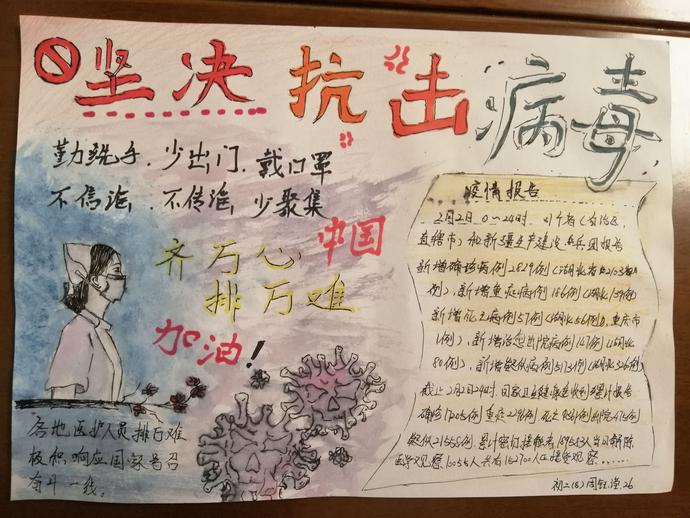 坚决抗击病毒
勤洗手、少出门、戴口罩
不信谣、不传谣 少聚集
齐万心
排万难
中国
加油!
各地医护人员排万难
积极响应国家号召
奋斗一线。
疫情报告
2月2日 0—24时 31个省(自治区、
直辖市)和新疆生产建设兵团报告
新增确诊病例2829例(湖北省2103
例),新增重症病例186例(湖北139例)
新增死亡病例57例(湖北56例,重庆市
1例),新增治愈出院病例147例(湖北
80例),新增疑似病例5173例(湖北
截止2月2日24时,国家卫健委收到累计报告
确诊17205例 重症2296例 死亡361例 出院475例
疑似21558例 累计密切接触者189583人 当日解除
医学观察10055人 共有152700人正接受观察......
初二(6) 26